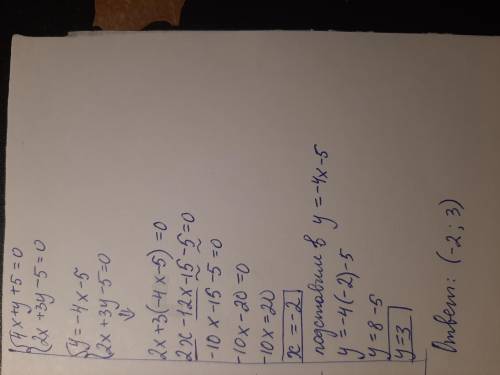 {4x+y+5=0
{2x+3y-5=0
{y=-4x-5
{2x+3y-5=0
↓
2x+3(-4x-5)=0
2x-12x-15-5=0
-10x-15-5=0
-10x-20=0
-10x-20
x=-2
подставим в y=-4x-5
y=-4(-2)-5
y=8-5
y=3
Ответ: (-2; 3)